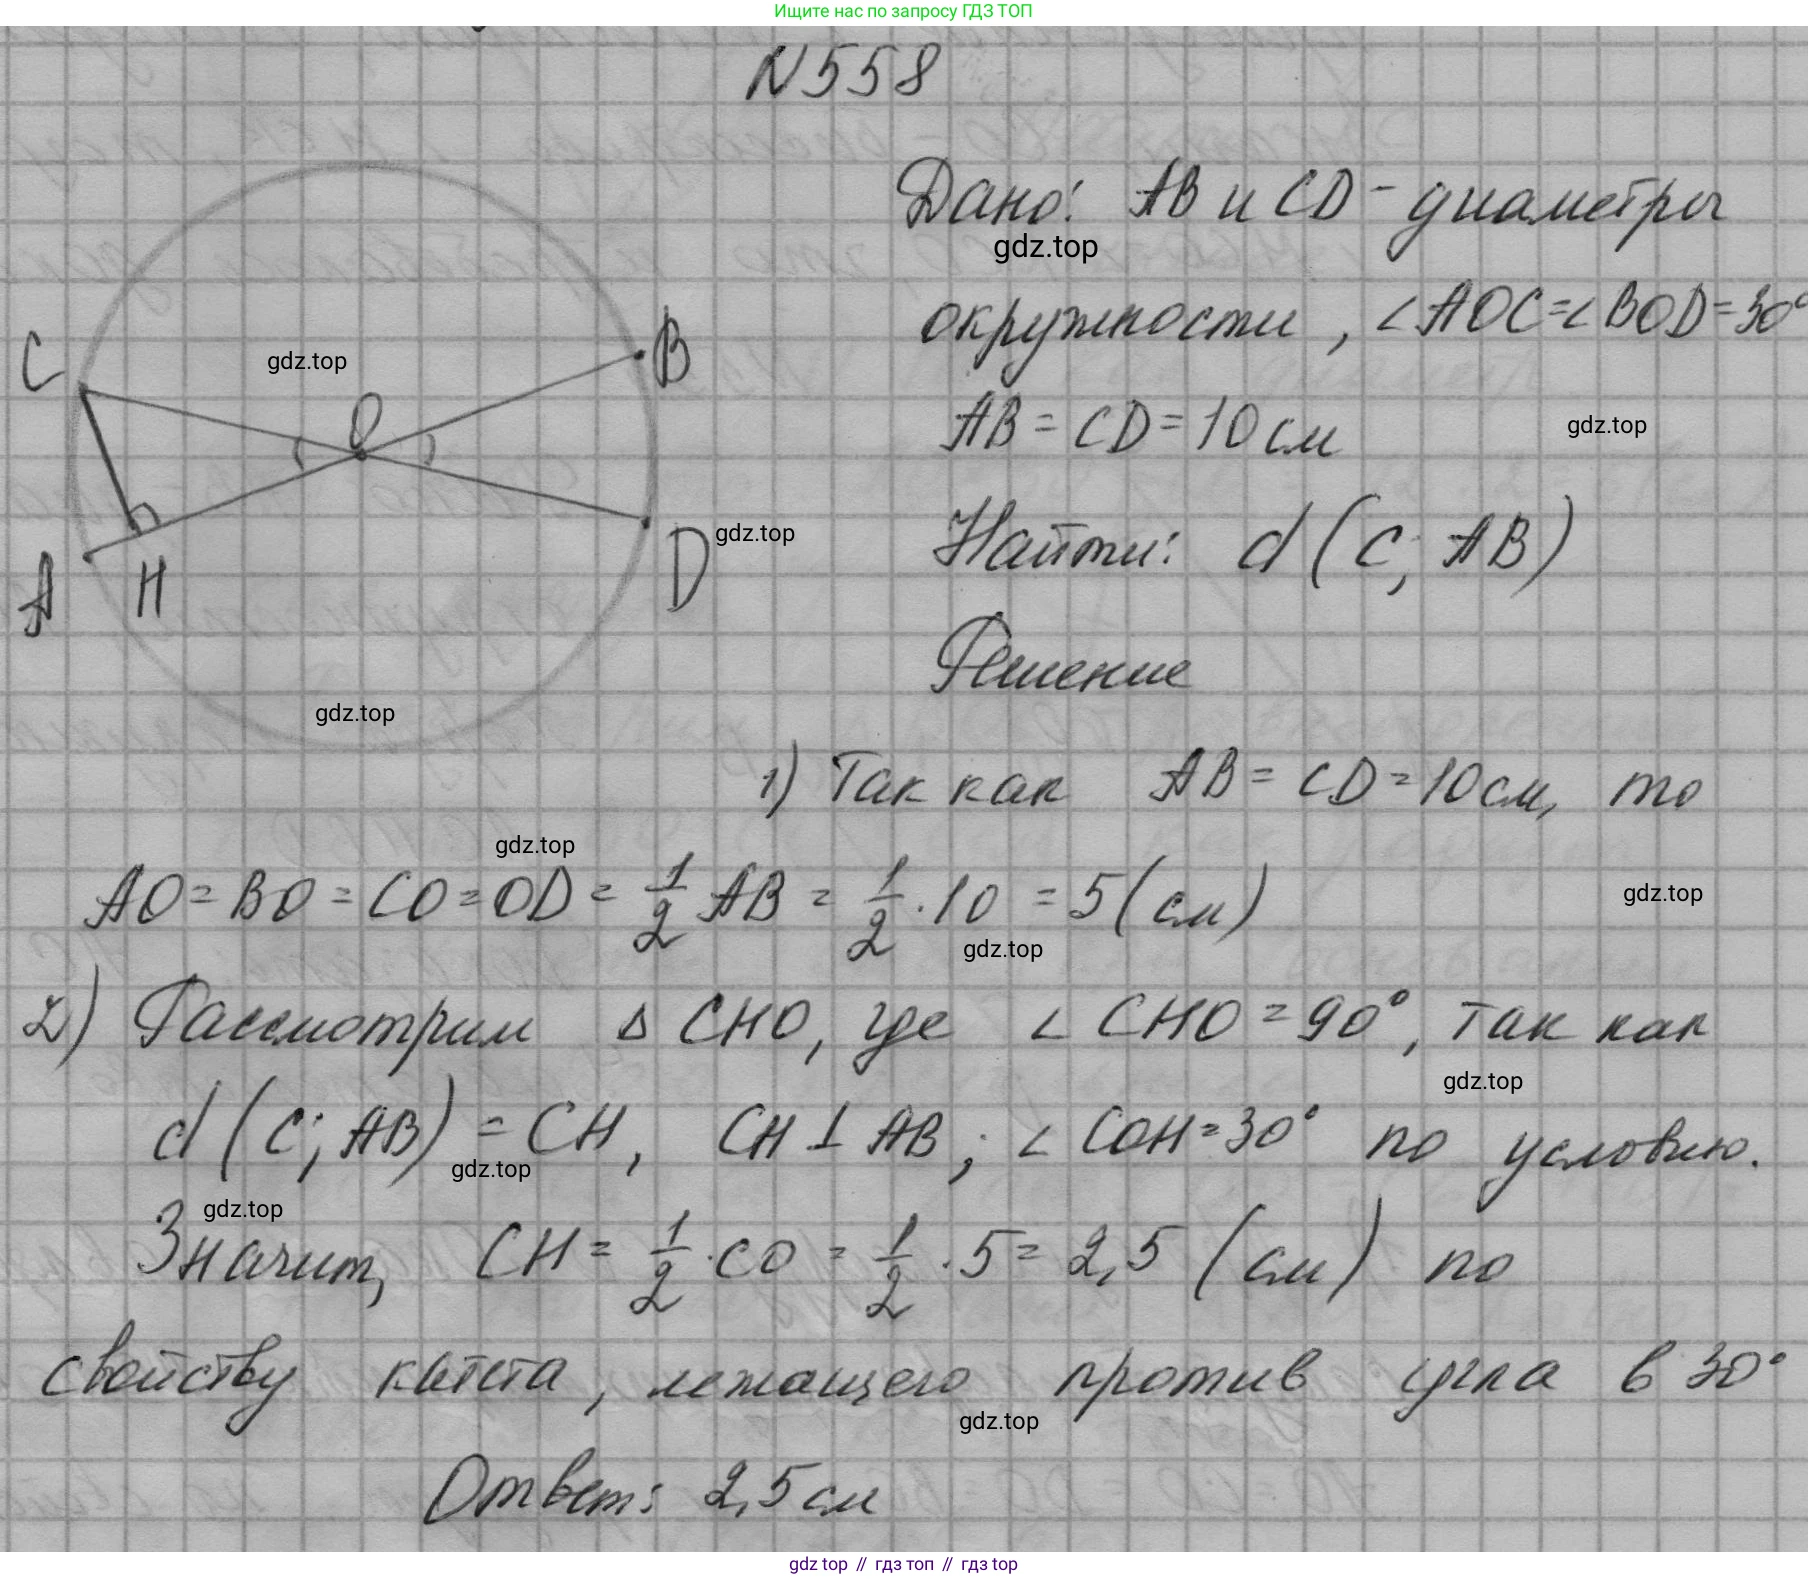 Ищите нас по запросу ГДЗ ТОП
N558
Дано: AB и CD - диаметры
gdz.top
окружности, ∠AOC=∠BOD=30°
C
gdz.top
O
B
AB = CD = 10 см
gdz.top
Найти: d (C; AB)
gdz.top
A
H
D
Решение
gdz.top
1) Так как AB = CD = 10 см, то
gdz.top
AO = BO = CO = OD = 1/2 AB = 1/2 · 10 = 5 (см)
gdz.top
gdz.top
2) Рассмотрим Δ CHO, где ∠ CHO = 90°, так как
gdz.top
d (C; AB) = CH, CH ⊥ AB; ∠ COH = 30° по условию.
gdz.top
gdz.top
Значит, CH = 1/2 · CO = 1/2 · 5 = 2,5 (см) по
свойству катета, лежащего против угла в 30°
gdz.top
Ответ: 2,5 см
gdz top // гдз топ // гдз top